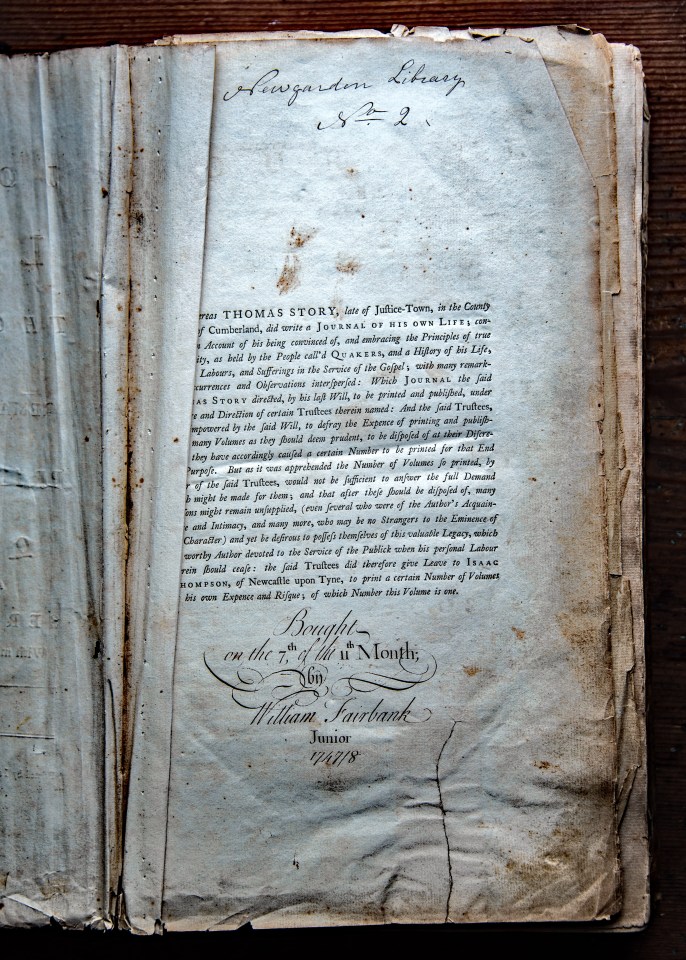 Newgarden Library
No. 2
ereas THOMAS STORY, late of Juſtice-Town, in the County
of Cumberland, did write a JOURNAL OF HIS OWN LIFE; con-
n Account of his being convinced of, and embracing the Principles of true
ity, as held by the People call'd QUAKERS, and a Hiſtory of his Life,
Labours, and Sufferings in the Service of the Goſpel; with many remark-
currences and Obſervations interſperſed: Which JOURNAL the ſaid
AS STORY directed, by his laſt Will, to be printed and publiſhed, under
e and Direction of certain Truſtees therein named: And the ſaid Truſtees,
mpowered by the ſaid Will, to defray the Expence of printing and publiſh-
many Volumes as they ſhould deem prudent, to be diſpoſed of at their Diſcre-
they have accordingly cauſed a certain Number to be printed for that End
urpoſe. But as it was apprehended the Number of Volumes ſo printed, by
r of the ſaid Truſtees, would not be ſufficient to anſwer the full Demand
h might be made for them; and that after theſe ſhould be diſpoſed of, many
ſons might remain unſupplied, (even ſeveral who were of the Author's Acquain-
e and Intimacy, and many more, who may be no Strangers to the Eminence of
Character) and yet be deſirous to poſſeſs themſelves of this valuable Legacy, which
worthy Author devoted to the Service of the Publick when his perſonal Labour
rein ſhould ceaſe: the ſaid Truſtees did therefore give Leave to ISAAC
HOMPSON, of Newcaſtle upon Tyne, to print a certain Number of Volumes
his own Expence and Riſque; of which Number this Volume is one.
Bought
on the 7th, of the 11th Month;
by
William Fairbank
Junior
1747/8